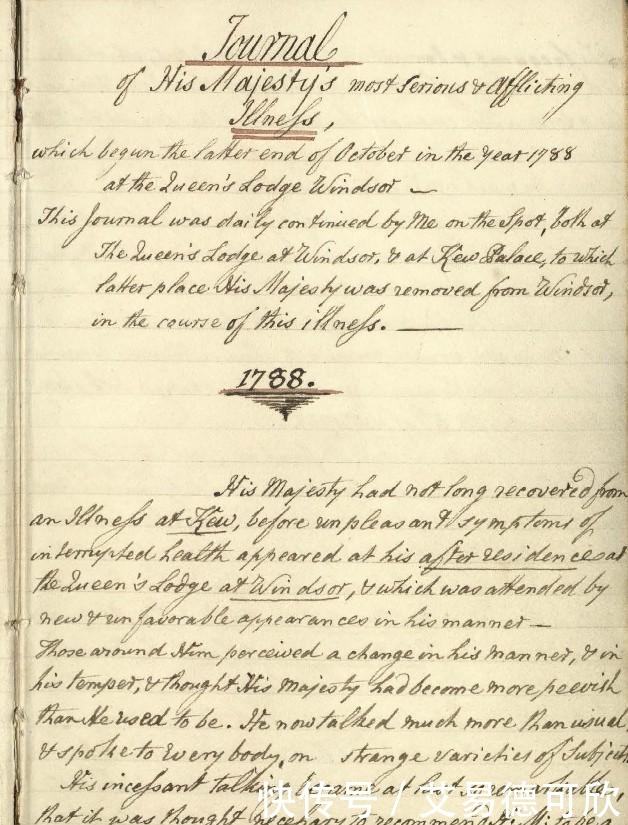 Journal
of His Majesty's most serious & afflicting
Illness,
which begun the latter end of October in the Year 1788
at the Queen's Lodge Windsor —
This Journal was daily continued by Me on the Spot, both at
The Queen's Lodge at Windsor, & at Kew Palace, to which
latter place His Majesty was removed from Windsor,
in the course of this illness. —
1788.
His Majesty had not long recovered from
an Illness at Kew, before unpleasant symptoms of
interrupted health appeared at his after residence at
the Queen's Lodge at Windsor, & which was attended by
new & unfavorable appearances in his manner —
Those around Him perceived a change in his manner, & in
his temper, & thought His Majesty had become more peevish
than He used to be. He now talked much more than usual
& spoke to every body, on strange varieties of Subjects
His incessant talking became at last so remarkable,
that it was thought necessary to recommend H: M: to be a
快传号 / 艾易德可欣